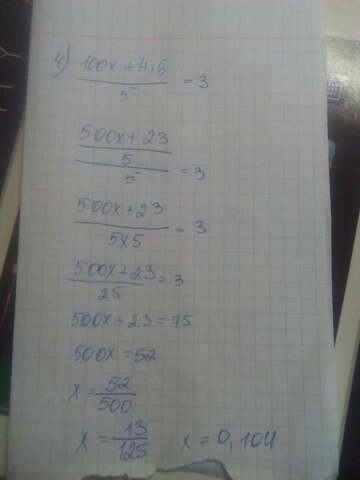 4) 100x + 4,6
5 = 3
500x + 23
5
5 = 3
500x + 23
5x5 = 3
500x + 23
25 = 3
500x + 23 = 75
500x = 52
x = 52
500
x = 13
125 x = 0,104